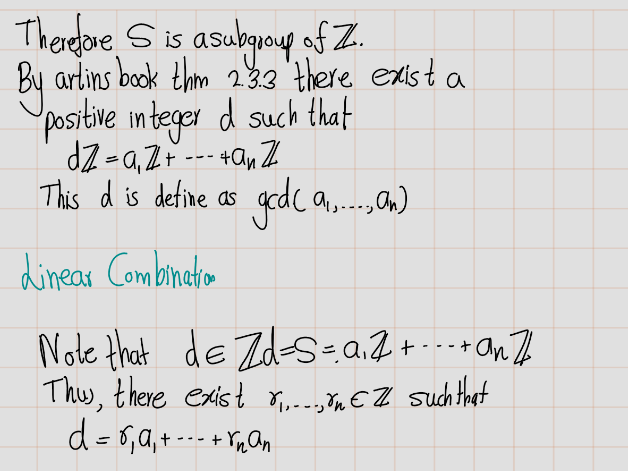 Therefore S is a subgroup of ℤ.
By artins book thm 2.3.3 there exist a
positive integer d such that
dℤ = a₁ℤ + ---- + aₙℤ
This d is define as gcd( a₁, ...., aₙ)
Linear Combination
Note that d ∈ ℤd = S = a₁ℤ + ---- + aₙℤ
Thus, there exist r₁, ..., rₙ ∈ ℤ such that
d = r₁a₁ + --- + rₙaₙ